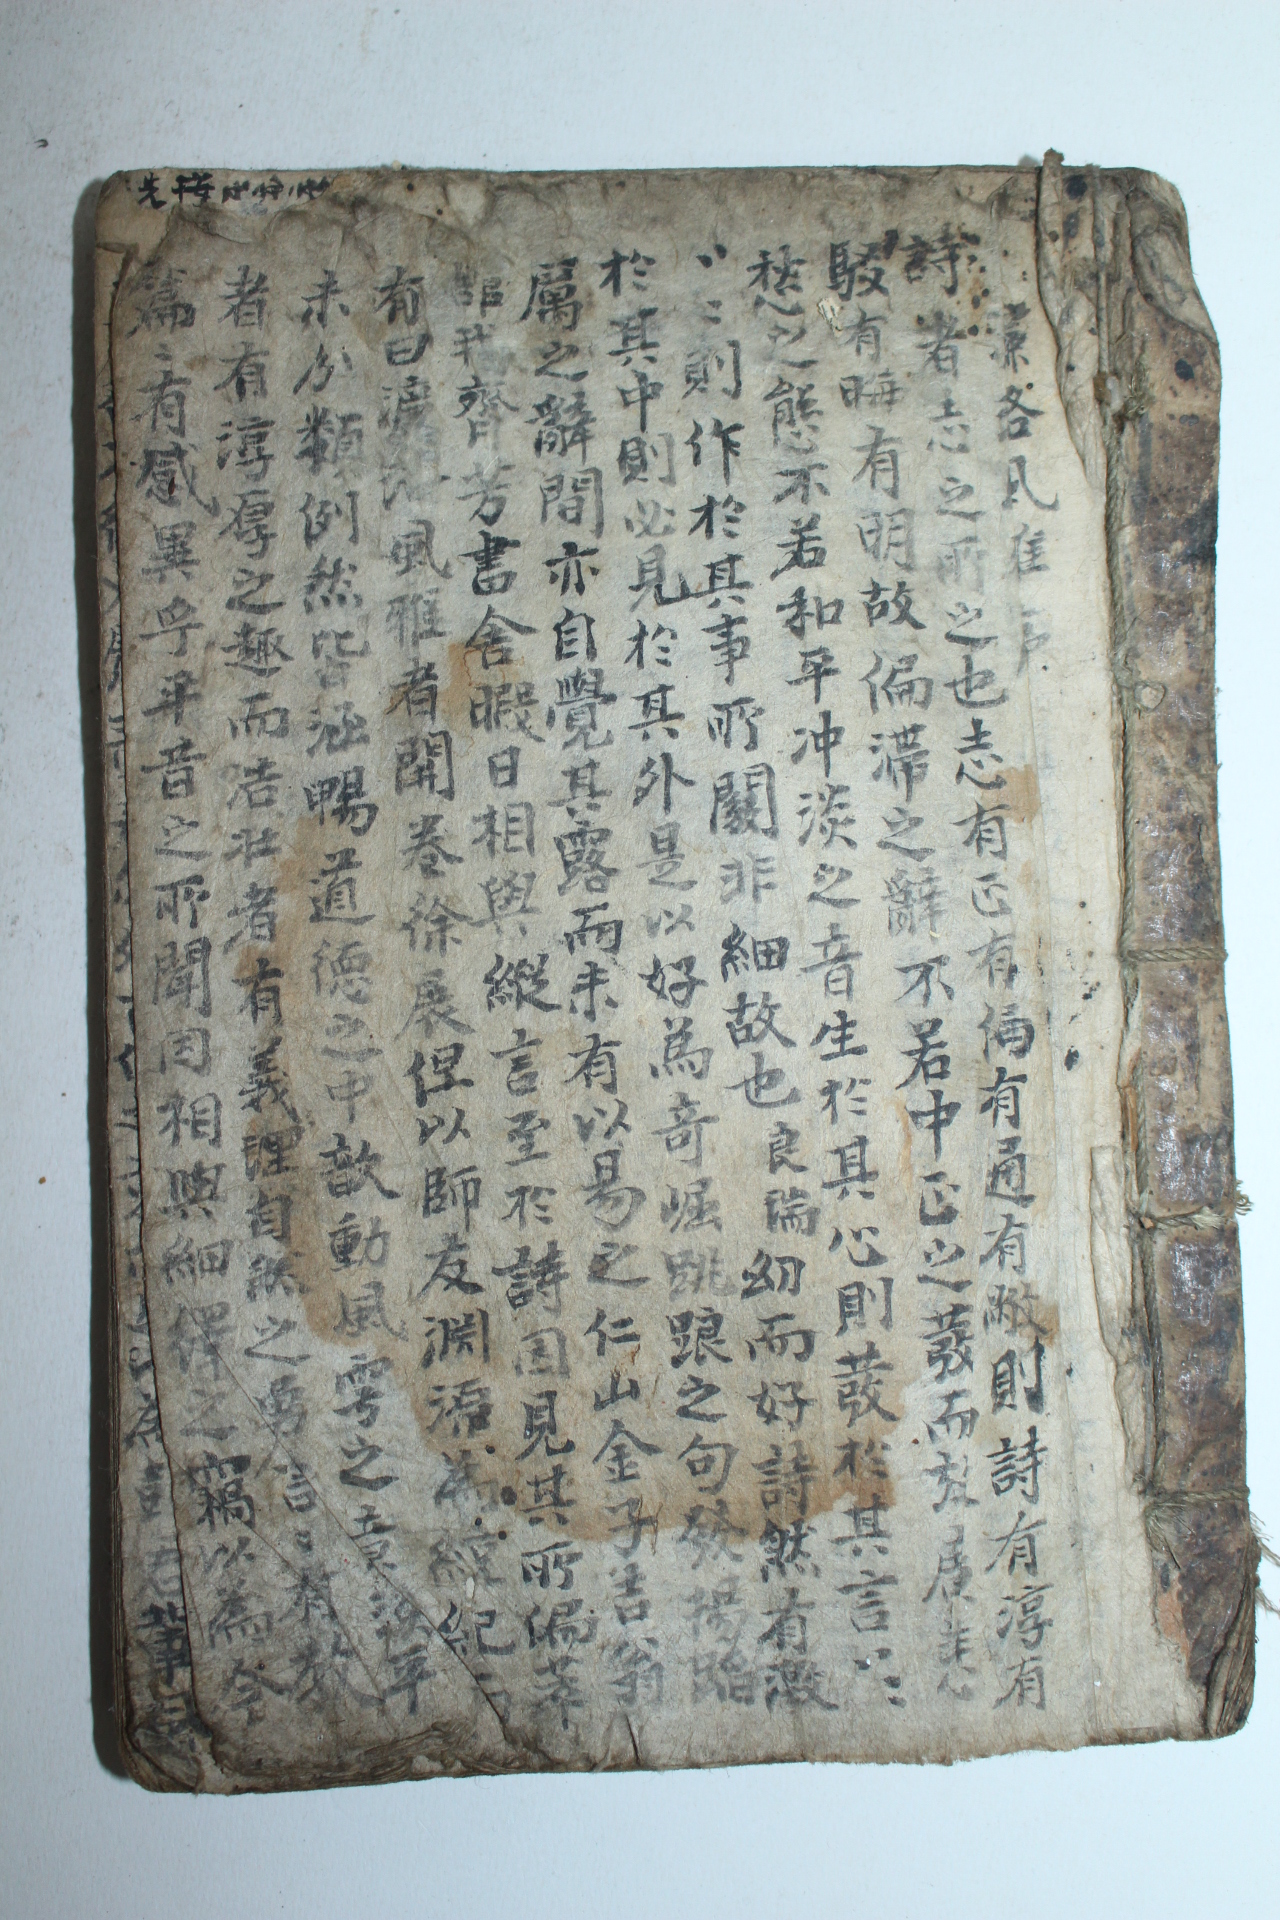 濂洛風雅序
詩者志之所之也志有正有偏有通有蔽則詩有淳有
駁有晦有明故偏滯之辭不若中正之發而放
愁之態不若和平冲淡之音生於其心則發於其言〻〻
〻〻則作於其事所關非細故也良瑞幼而好詩然有激
於其中則必見於其外是以好爲奇崛跳踉之句發揚蹈
厲之辭間亦自覺其露而未有以易之仁山金子吉翁
館我齊芳書舍暇日相與縱言至於詩因見其所編萃
有曰濂洛風雅者開卷徐展但以師友淵源爲統紀而
未分類例然皆涵暢道德之中歆動風雩之意淡平
者有淳厚之趣而浩壯者有義理自然之勇言〻有教
篇〻有感異乎平昔之所聞因相與細繹之竊以爲今